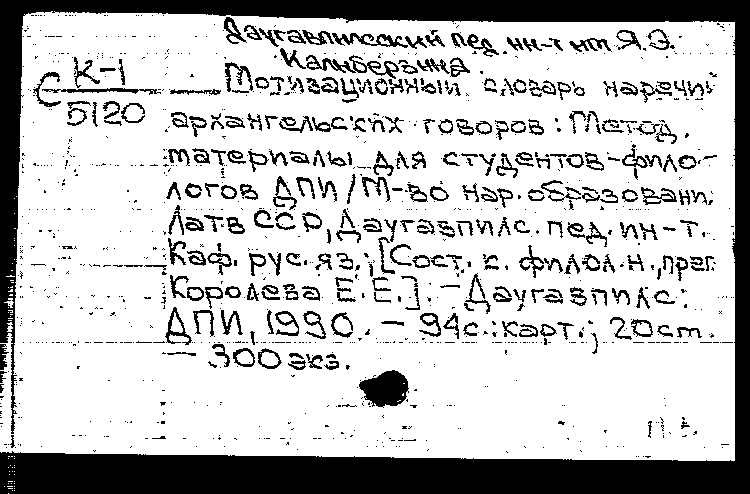 Даугавпилсский пед. ин-т им. Я.Э.
Калнберзиня.
К-1
С
5120
Мотивационный словарь наречий
архангельских говоров: Метод.
материалы для студентов-фило-
логов ДПИ/М-во нар. образовани.
Латв ССР, Даугавпилс. пед. ин-т.
Каф. рус. яз.; [Сост. к. филол. н., преп.
Королева Е.Е.]. - Даугавпилс:
ДПИ, 1990. - 94с.: карт.; 20см.
- 300 экз.